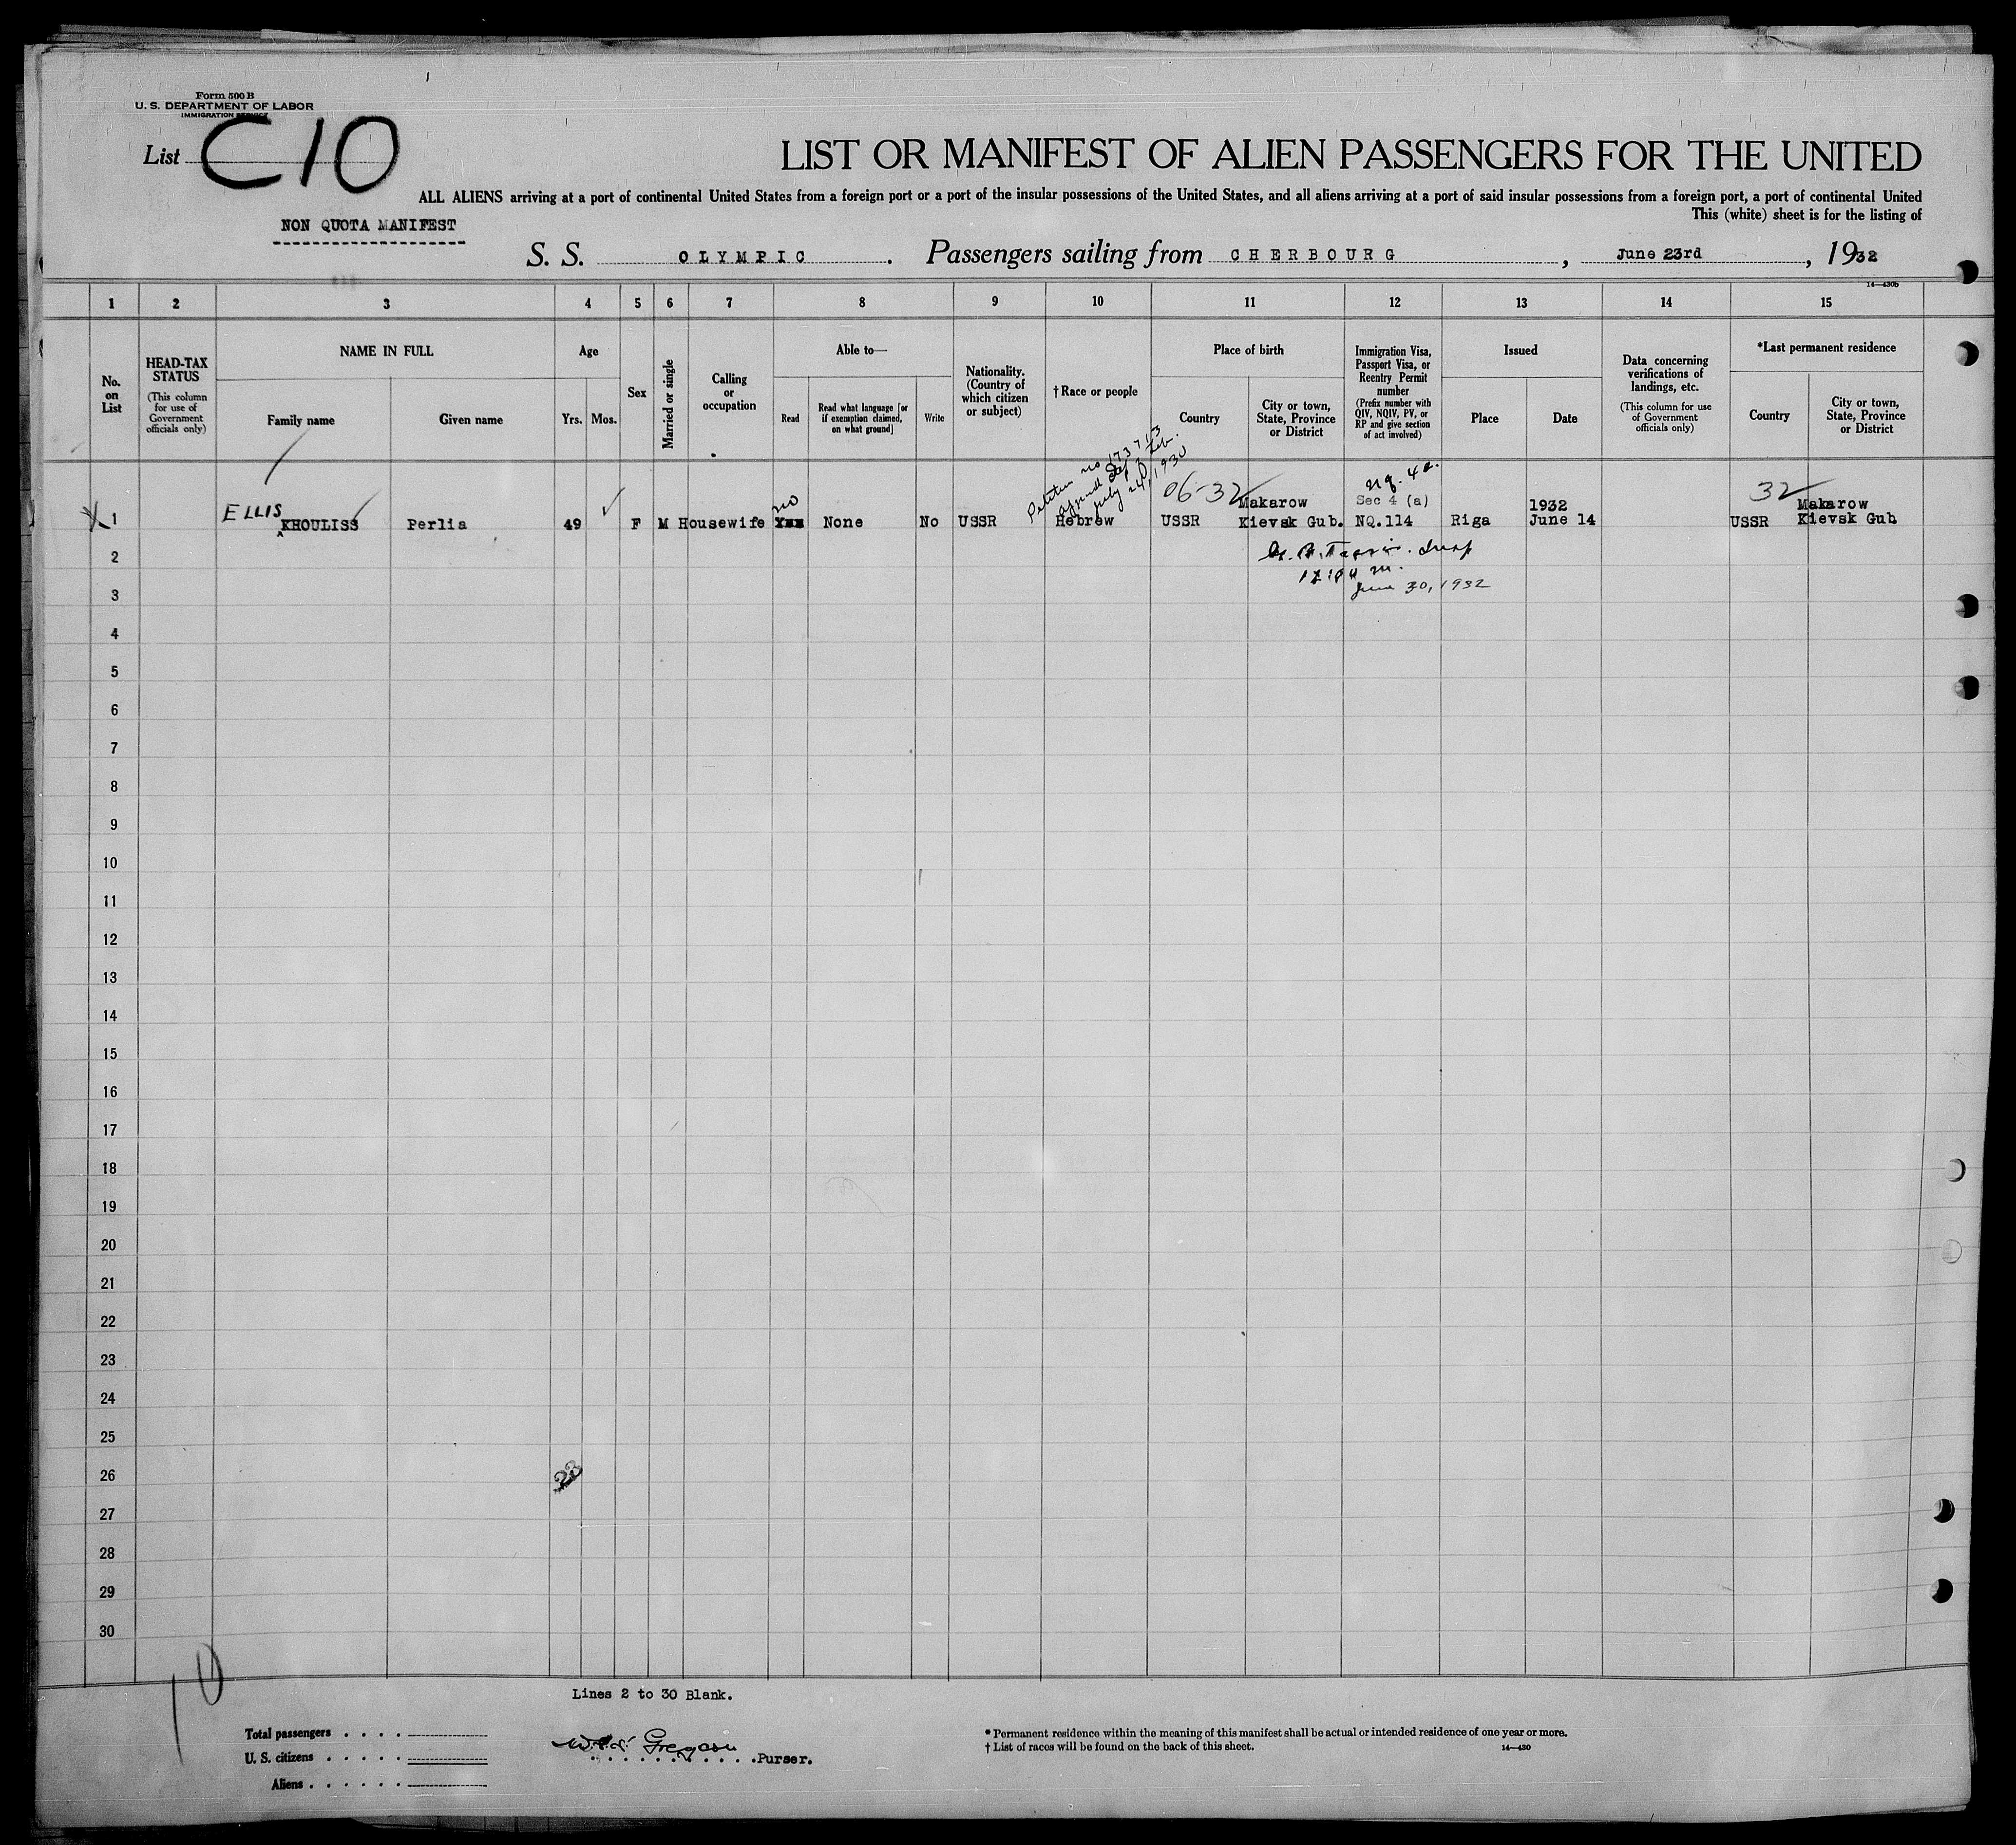 Form 500 B
U. S. DEPARTMENT OF LABOR
IMMIGRATION SERVICE
List C10
LIST OR MANIFEST OF ALIEN PASSENGERS FOR THE UNITED
ALL ALIENS arriving at a port of continental United States from a foreign port or a port of the insular possessions of the United States, and all aliens arriving at a port of said insular possessions from a foreign port, a port of continental United
This (white) sheet is for the listing of
NON QUOTA MANIFEST
S. S. OLYMPIC. Passengers sailing from CHERBOURG, June 23rd, 1932
14—430b
1 2 3 4 5 6 7 8 9 10 11 12 13 14 15
No. on List
HEAD-TAX STATUS
(This column for use of Government officials only)
NAME IN FULL
Family name
Given name
Age
Yrs. Mos.
Sex
Married or single
Calling or occupation
Able to—
Read
Read what language [or if exemption claimed, on what ground]
Write
Nationality. (Country of which citizen or subject)
† Race or people
Place of birth
Country
City or town, State, Province or District
Immigration Visa, Passport Visa, or Reentry Permit number
(Prefix number with QIV, NQIV, PV, or RP and give section of act involved)
Issued
Place
Date
Data concerning verifications of landings, etc.
(This column for use of Government officials only)
*Last permanent residence
Country
City or town, State, Province or District
Petition no 173713
July 24, 1930
06-32
nq. 4a.
32
ELLIS no Makarow Sec 4 (a) 1932 Makarow
1 KHOULISS Perlia 49 F M Housewife None No USSR Hebrew USSR Kievsk Gub. NQ.114 Riga June 14 USSR Kievsk Gub
2
June 30, 1932
3
4
5
6
7
8
9
10
11
12
13
14
15
16
17
18
19
20
21
22
23
24
25
26
27
28
29
30
10
Lines 2 to 30 Blank.
Total passengers . . . .
U. S. citizens . . . . .
Aliens . . . . . .
Gregson Purser.
* Permanent residence within the meaning of this manifest shall be actual or intended residence of one year or more.
† List of races will be found on the back of this sheet.
14—430